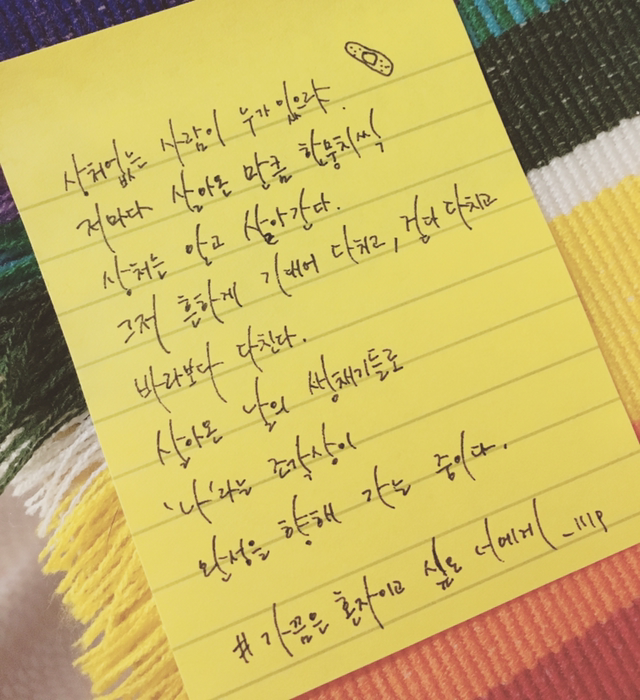 상처없는 사람이 누가 있으랴.
저마다 살아온 만큼 한뭉치씩
상처를 안고 살아간다.
그저 흔하게 기대어 다치고, 걷다 다치고
바라보다 다친다.
살아온 날의 생채기들로
'나'라는 조각상이
완성을 향해 가는 중이다.
#가끔은 혼자이고 싶은 너에게_111p